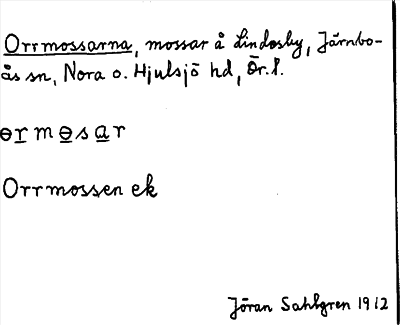 Orrmossarna, mossar å Lindesby, Järnbo-
ås sn, Nora o. Hjulsjö hd, Ör. l.
ɵr mɵsar
Orrmossen ek
Jöran Sahlgren 1912